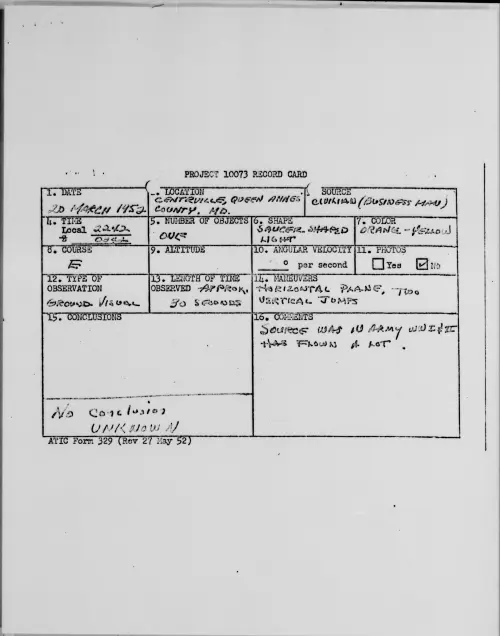 PROJECT 10073 RECORD CARD
1. DATE
20 MARCH 1952
2. LOCATION
CENTREVILLE, QUEEN ANNES
COUNTY, MD.
SOURCE
CIVILIAN (BUSINESS MAN)
4. TIME
Local 2242
5. NUMBER OF OBJECTS
ONE
6. SHAPE
SAUCER SHAPED
LIGHT
7. COLOR
ORANGE - YELLOW
8. COURSE
E
9. ALTITUDE
10. ANGULAR VELOCITY
° per second
11. PHOTOS
Yes No
12. TYPE OF
OBSERVATION
GROUND VISUAL
13. LENGTH OF TIME
OBSERVED APPROX.
30 SECONDS
14. MANEUVERS
HORIZONTAL PLANE, TWO
VERTICAL JUMPS
15. CONCLUSIONS
No Conclusion
UNKNOWN
16. COMMENTS
SOURCE WAS IN ARMY WWI & II
HAS FLOWN A LOT.
ATIC Form 329 (Rev 27 May 52)